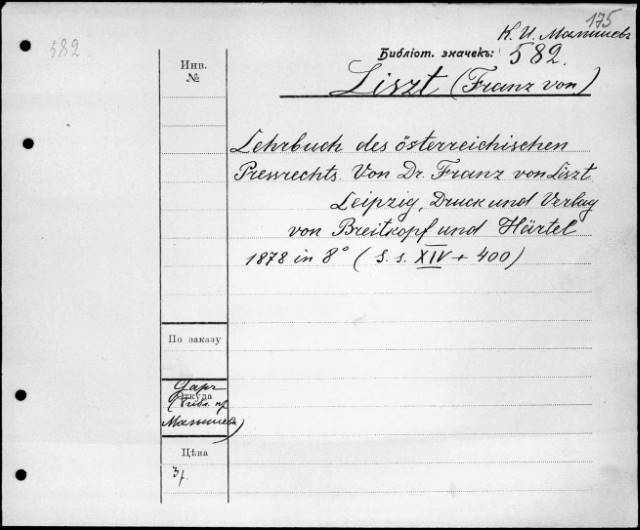 175
К. И. Малышевъ
582
Библіот. значекъ: 582.
Инв.
№
Liszt (Franz von)
Lehrbuch des österreichischen
Pressrechts. Von Dr. Franz von Liszt.
Leipzig, Druck und Verlag
von Breitkopf und Härtel
1878 in 8° (S. s. XIV + 400)
По заказу
Даръ
Откуда
(библ. пр.
Малышева)
Цѣна
3р.